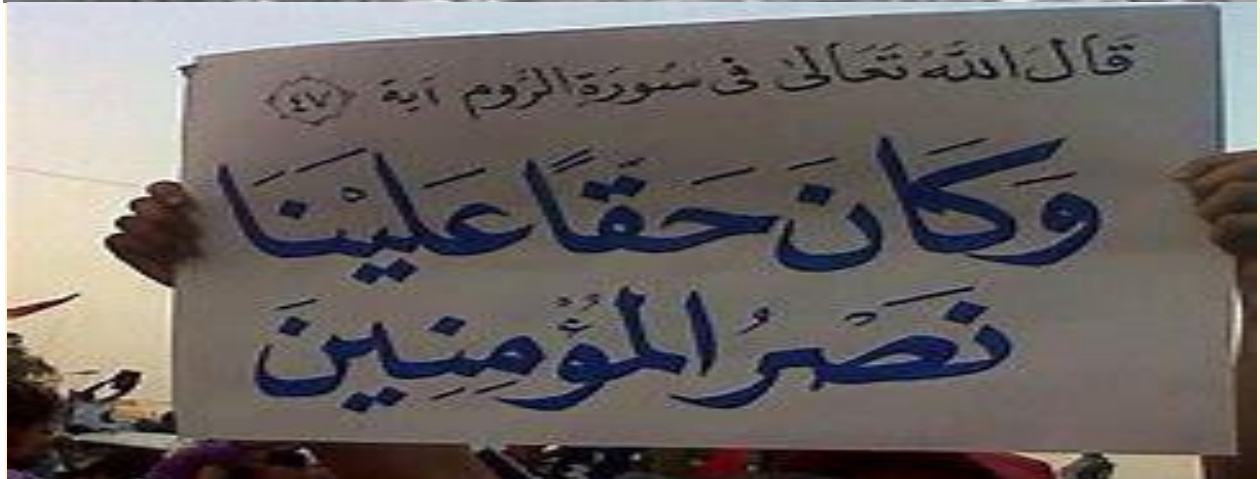 قَالَ اللهُ تَعَالىٰ فى سُورَةِ الرّوم آية ٤٧
وَكَانَ حَقًّا عَلَيْنَا
نَصْرُ المُؤْمِنِينَ